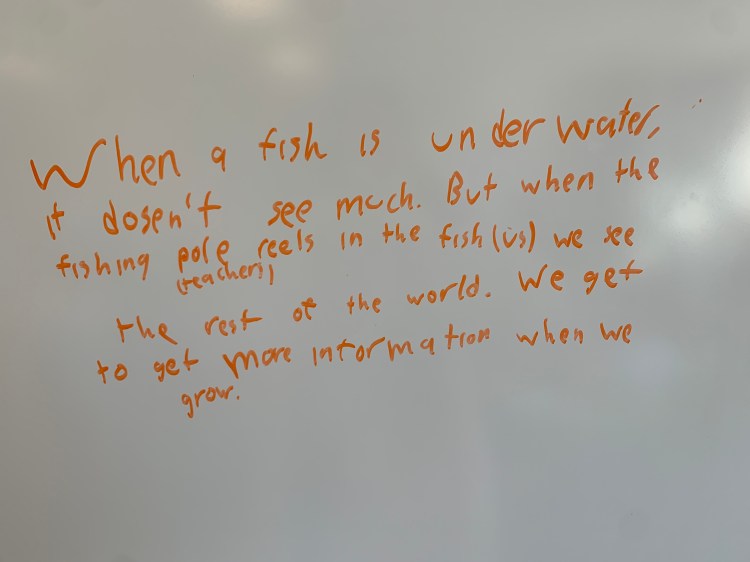 When a fish is under water,
it dosen't see much. But when the
fishing pole reels in the fish (us) we see
(teachers)
the rest of the world. We get
to get more information when we
grow.